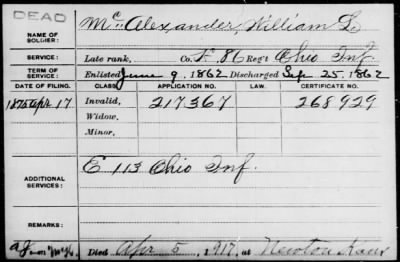 DEAD
NAME OF SOLDIER: McAlexander, William L.
SERVICE: Late rank, Co. F, 86 Reg't Ohio Inf.
TERM OF SERVICE: Enlisted June 9, 1862 Discharged Sep. 25, 1862
DATE OF FILING. CLASS. APPLICATION NO. LAW. CERTIFICATE NO.
1875 Apr. 17 Invalid, 217367 268929
Widow,
Minor,
ADDITIONAL SERVICES: E 113 Ohio Inf.
REMARKS:
Died Apr 5, 1917, at Newton Kans